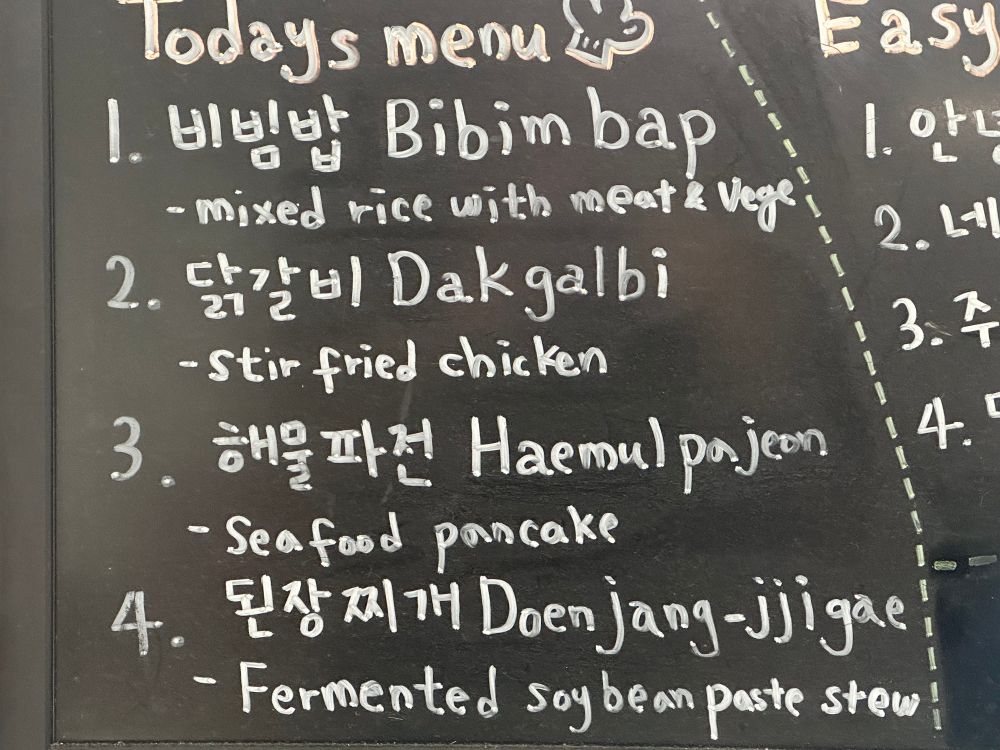 Todays menu
1. 비빔밥 Bibim bap
- mixed rice with meat & Vege
2. 닭갈비 Dak galbi
- stir fried chicken
3. 해물파전 Haemul pajeon
- Seafood pancake
4. 된장찌개 Doenjang-jjigae
- Fermented soybean paste stew
Easy
1. 안녕
2. 네
3. 주
4.